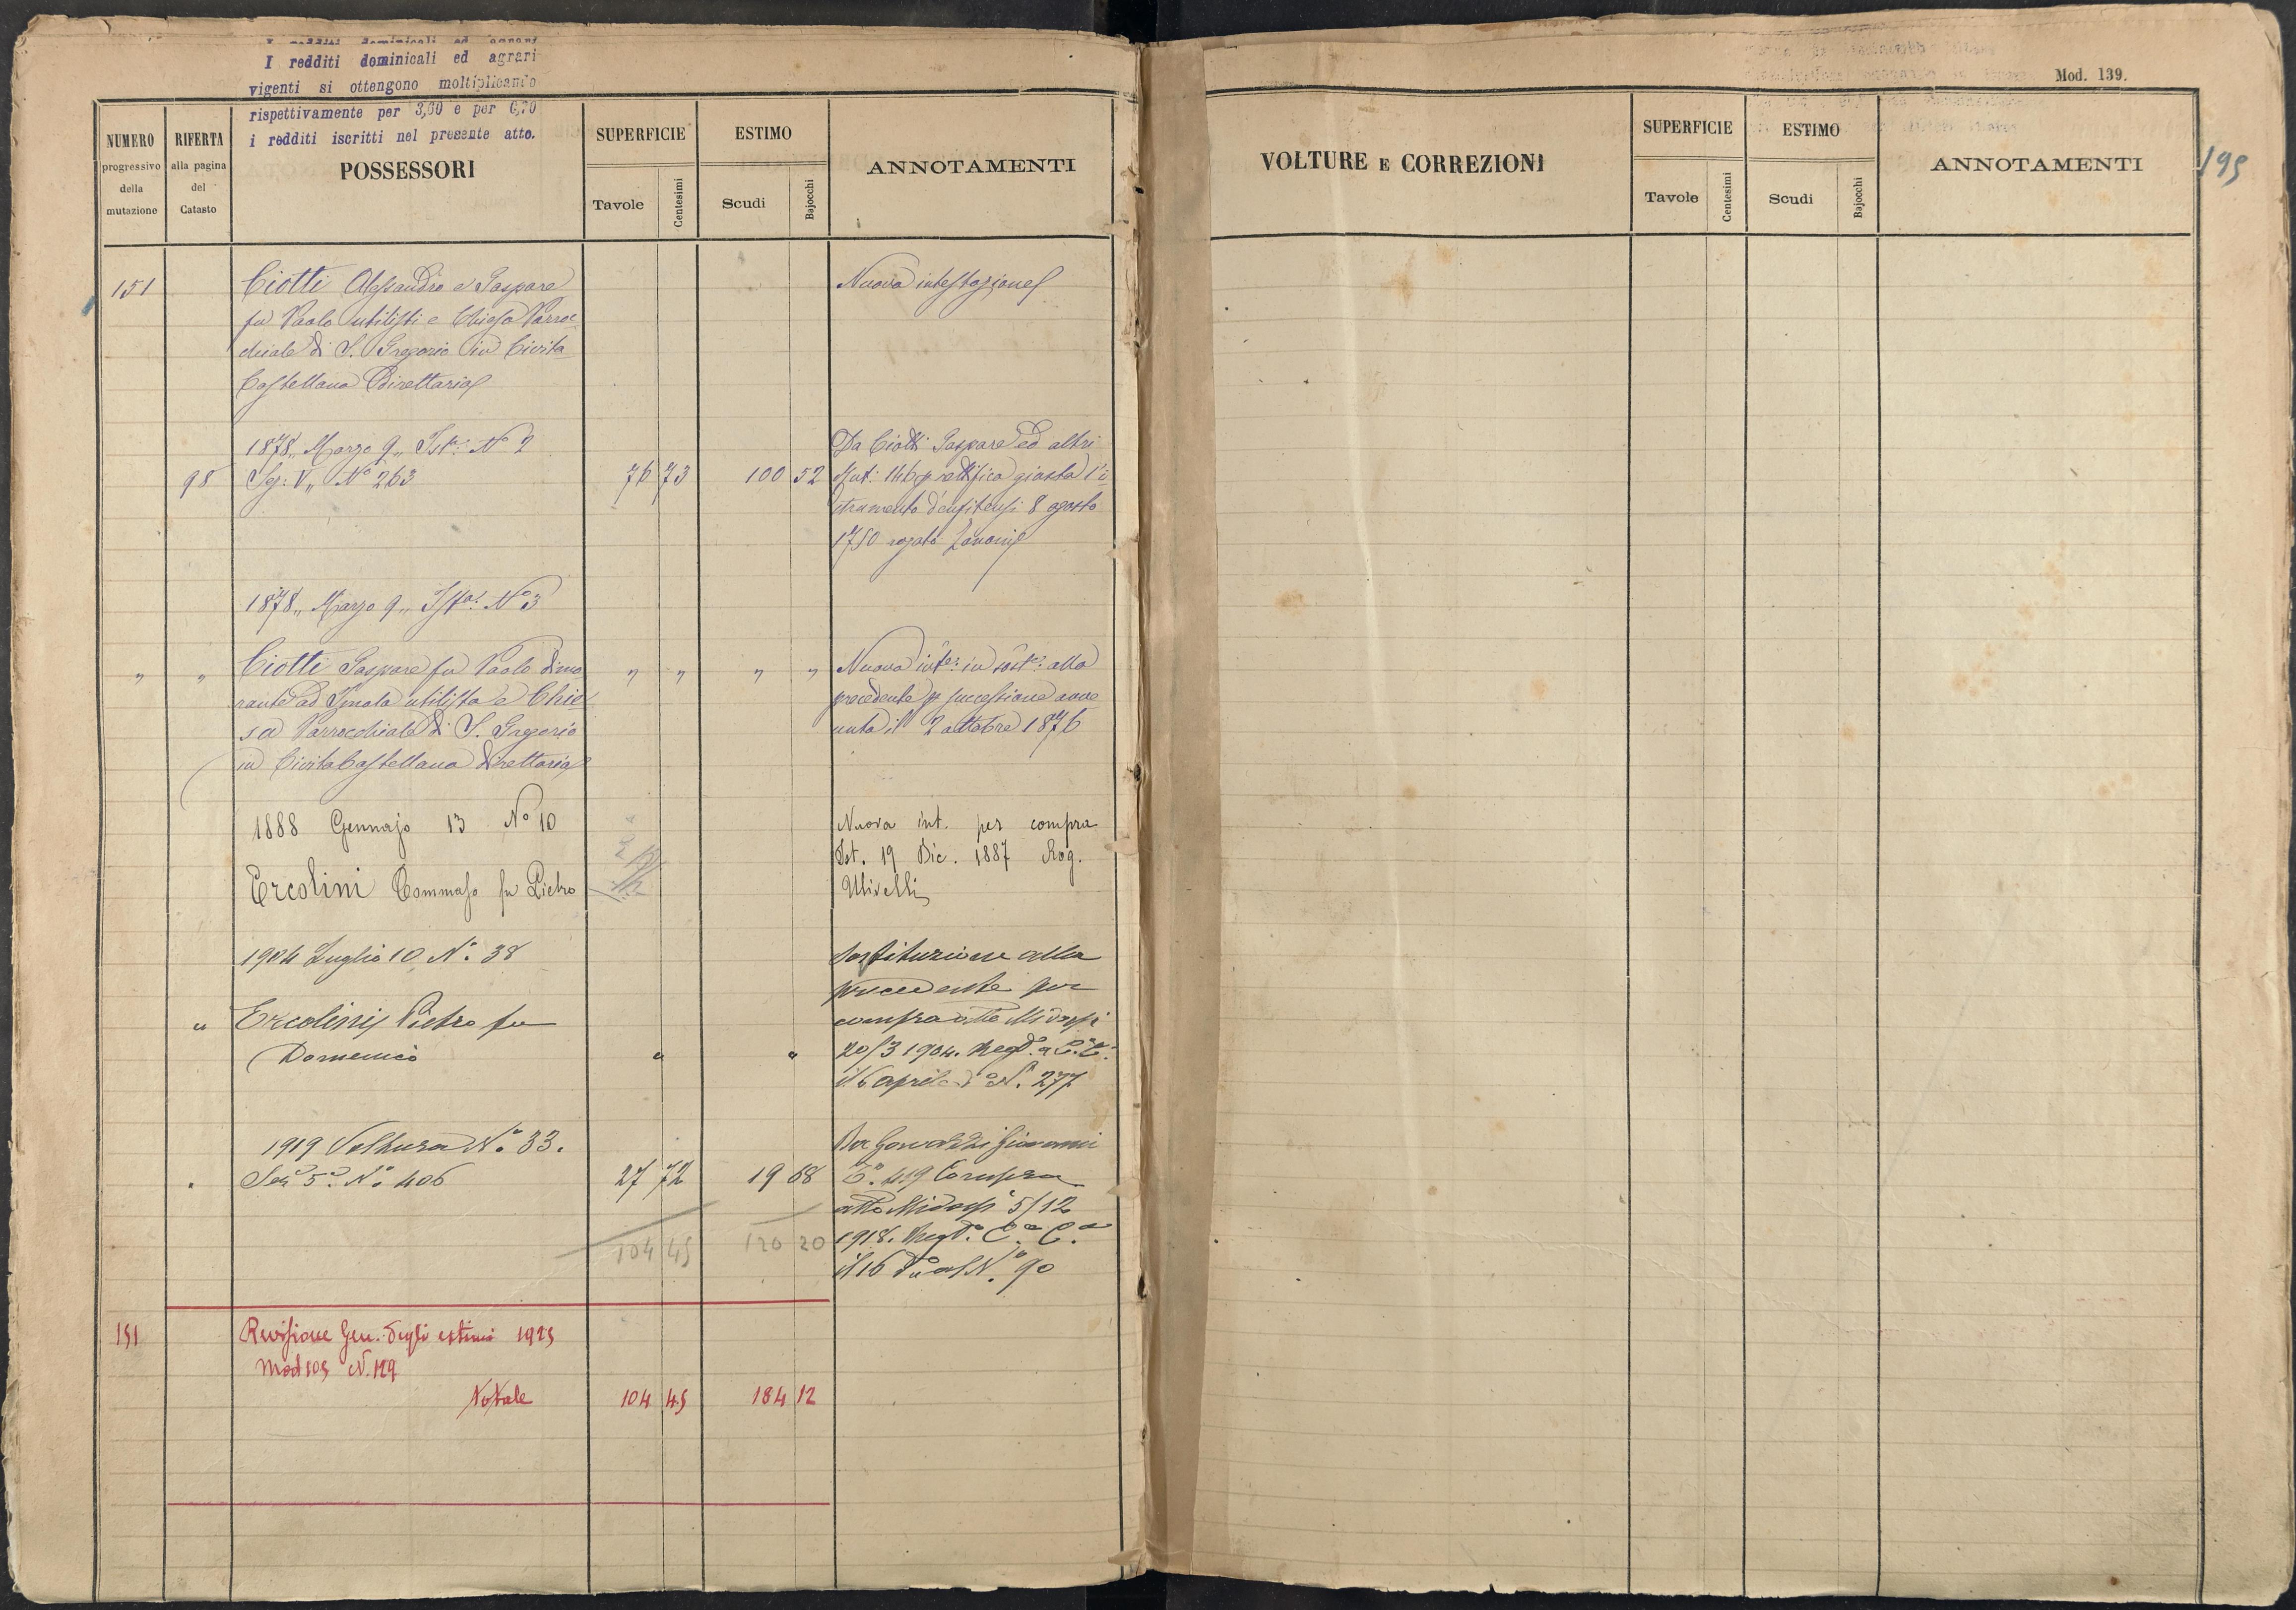 I redditi dominicali ed agrari
I redditi dominicali ed agrari
vigenti si ottengono moltiplicando
rispettivamente per 3,60 e per 6,70
i redditi iscritti nel presente atto.
NUMERO
progressivo
della
mutazione
RIFERTA
alla pagina
del
Catasto
POSSESSORI
SUPERFICIE
Tavole
Centesimi
ESTIMO
Scudi
Bajocchi
ANNOTAMENTI
151
Ciotti Alessandro e Gaspare
fu Paolo utilisti e Chiesa Parroc
chiale di S. Gregorio in Civita
Castellana Direttaria
Nuova intestazione
1878,, Marzo 9,, Ista: No 2
98 Sez: V,, No 263 76 73 100 52
Da Ciotti Gaspare ed altri
Mut: 146 p rettifica giusta l'i
strumento d'enfiteusi 8 agosto
1750 rogato
1878,, Marzo 9,, Ista: No 3
" " Ciotti Gaspare fu Paolo dimo " " " "
rante ad Imola utilista e Chie
sa Parrocchiale di S. Gregorio
in Civita Castellana direttaria
Nuova inte: in sost: alla
precedente p successione avve
nuta il 2 ottobre 1876
1888 Gennajo 13 No 10
Ercolini Tommaso fu Pietro
Nuova int. per compra
Ist. 19 Dic. 1887 Rog.
Ulivelli
1904 Luglio 10 No. 38
" Ercolini Pietro fu
Domenico " "
Sostituzione alla
precedente per
compra atto Midossi
20/3 1904. Regto. a C. C.
il 6 aprile do al N. 277
1919 Voltura No. 33.
Sez 5a No 406 27 72 19 68
104 45 120 20
Da Giovanni
Ta. 419 Compra
atto Midossi 5/12
1918. Regto. Ca. Ca.
il 16 do al No. 90
151 Revisione Gen. degli estimi 1925
Mod 105 N. 129
Totale 104 45 184 12
Mod. 139.
VOLTURE E CORREZIONI
SUPERFICIE
Tavole
Centesimi
ESTIMO
Scudi
Bajocchi
ANNOTAMENTI
195